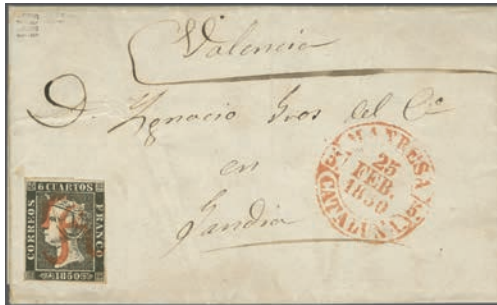 Valencia
D. Ignacio Gros del Co
en
Gandia
MANRESA
25
FEB.
1850
CATALUÑA
6 CUARTOS
CORREOS
FRANCO
1850